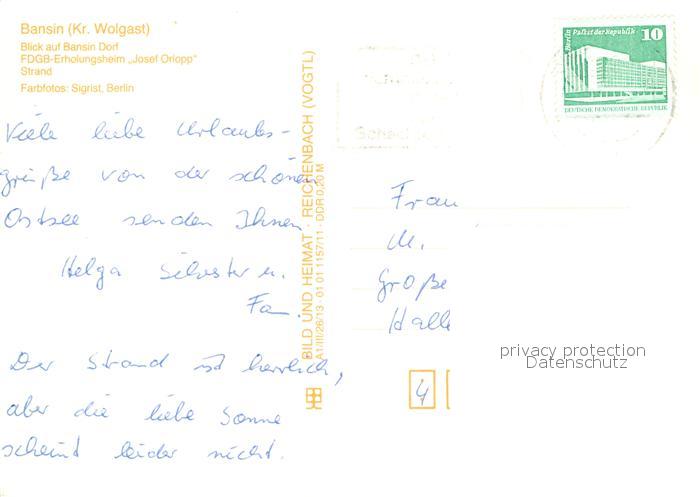 Bansin (Kr. Wolgast)
Blick auf Bansin Dorf
FDGB-Erholungsheim „Josef Orlopp"
Strand
Farbfotos: Sigrist, Berlin
Viele liebe Urlaubs-
grüße von der schönen
Ostsee senden Ihnen
Helga Silvester u.
Fa.
Der Strand ist herrlich,
aber die liebe Sonne
scheint leider nicht.
BILD UND HEIMAT · REICHENBACH (VOGTL)
A1/III/26/13 · 01 01 1157/11 · DDR 0,20 M
Berlin Palast der Republik 10
DEUTSCHE DEMOKRATISCHE REPUBLIK
Frau
M.
Große
Halle
4
privacy protection
Datenschutz